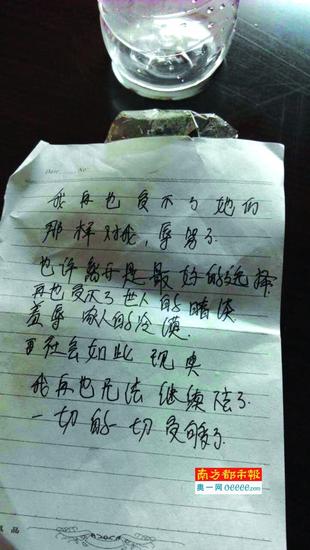 Date No
我再也受不了她们
那样对我,辱骂了.
也许离开是最好的选择.
再也受不了世人的暗淡
羞辱 家人的冷漠.
社会如此 现实
我再也无法 继续陪了.
一切的一切受够了.
品
南方都市報
奥一网 oeeee.com